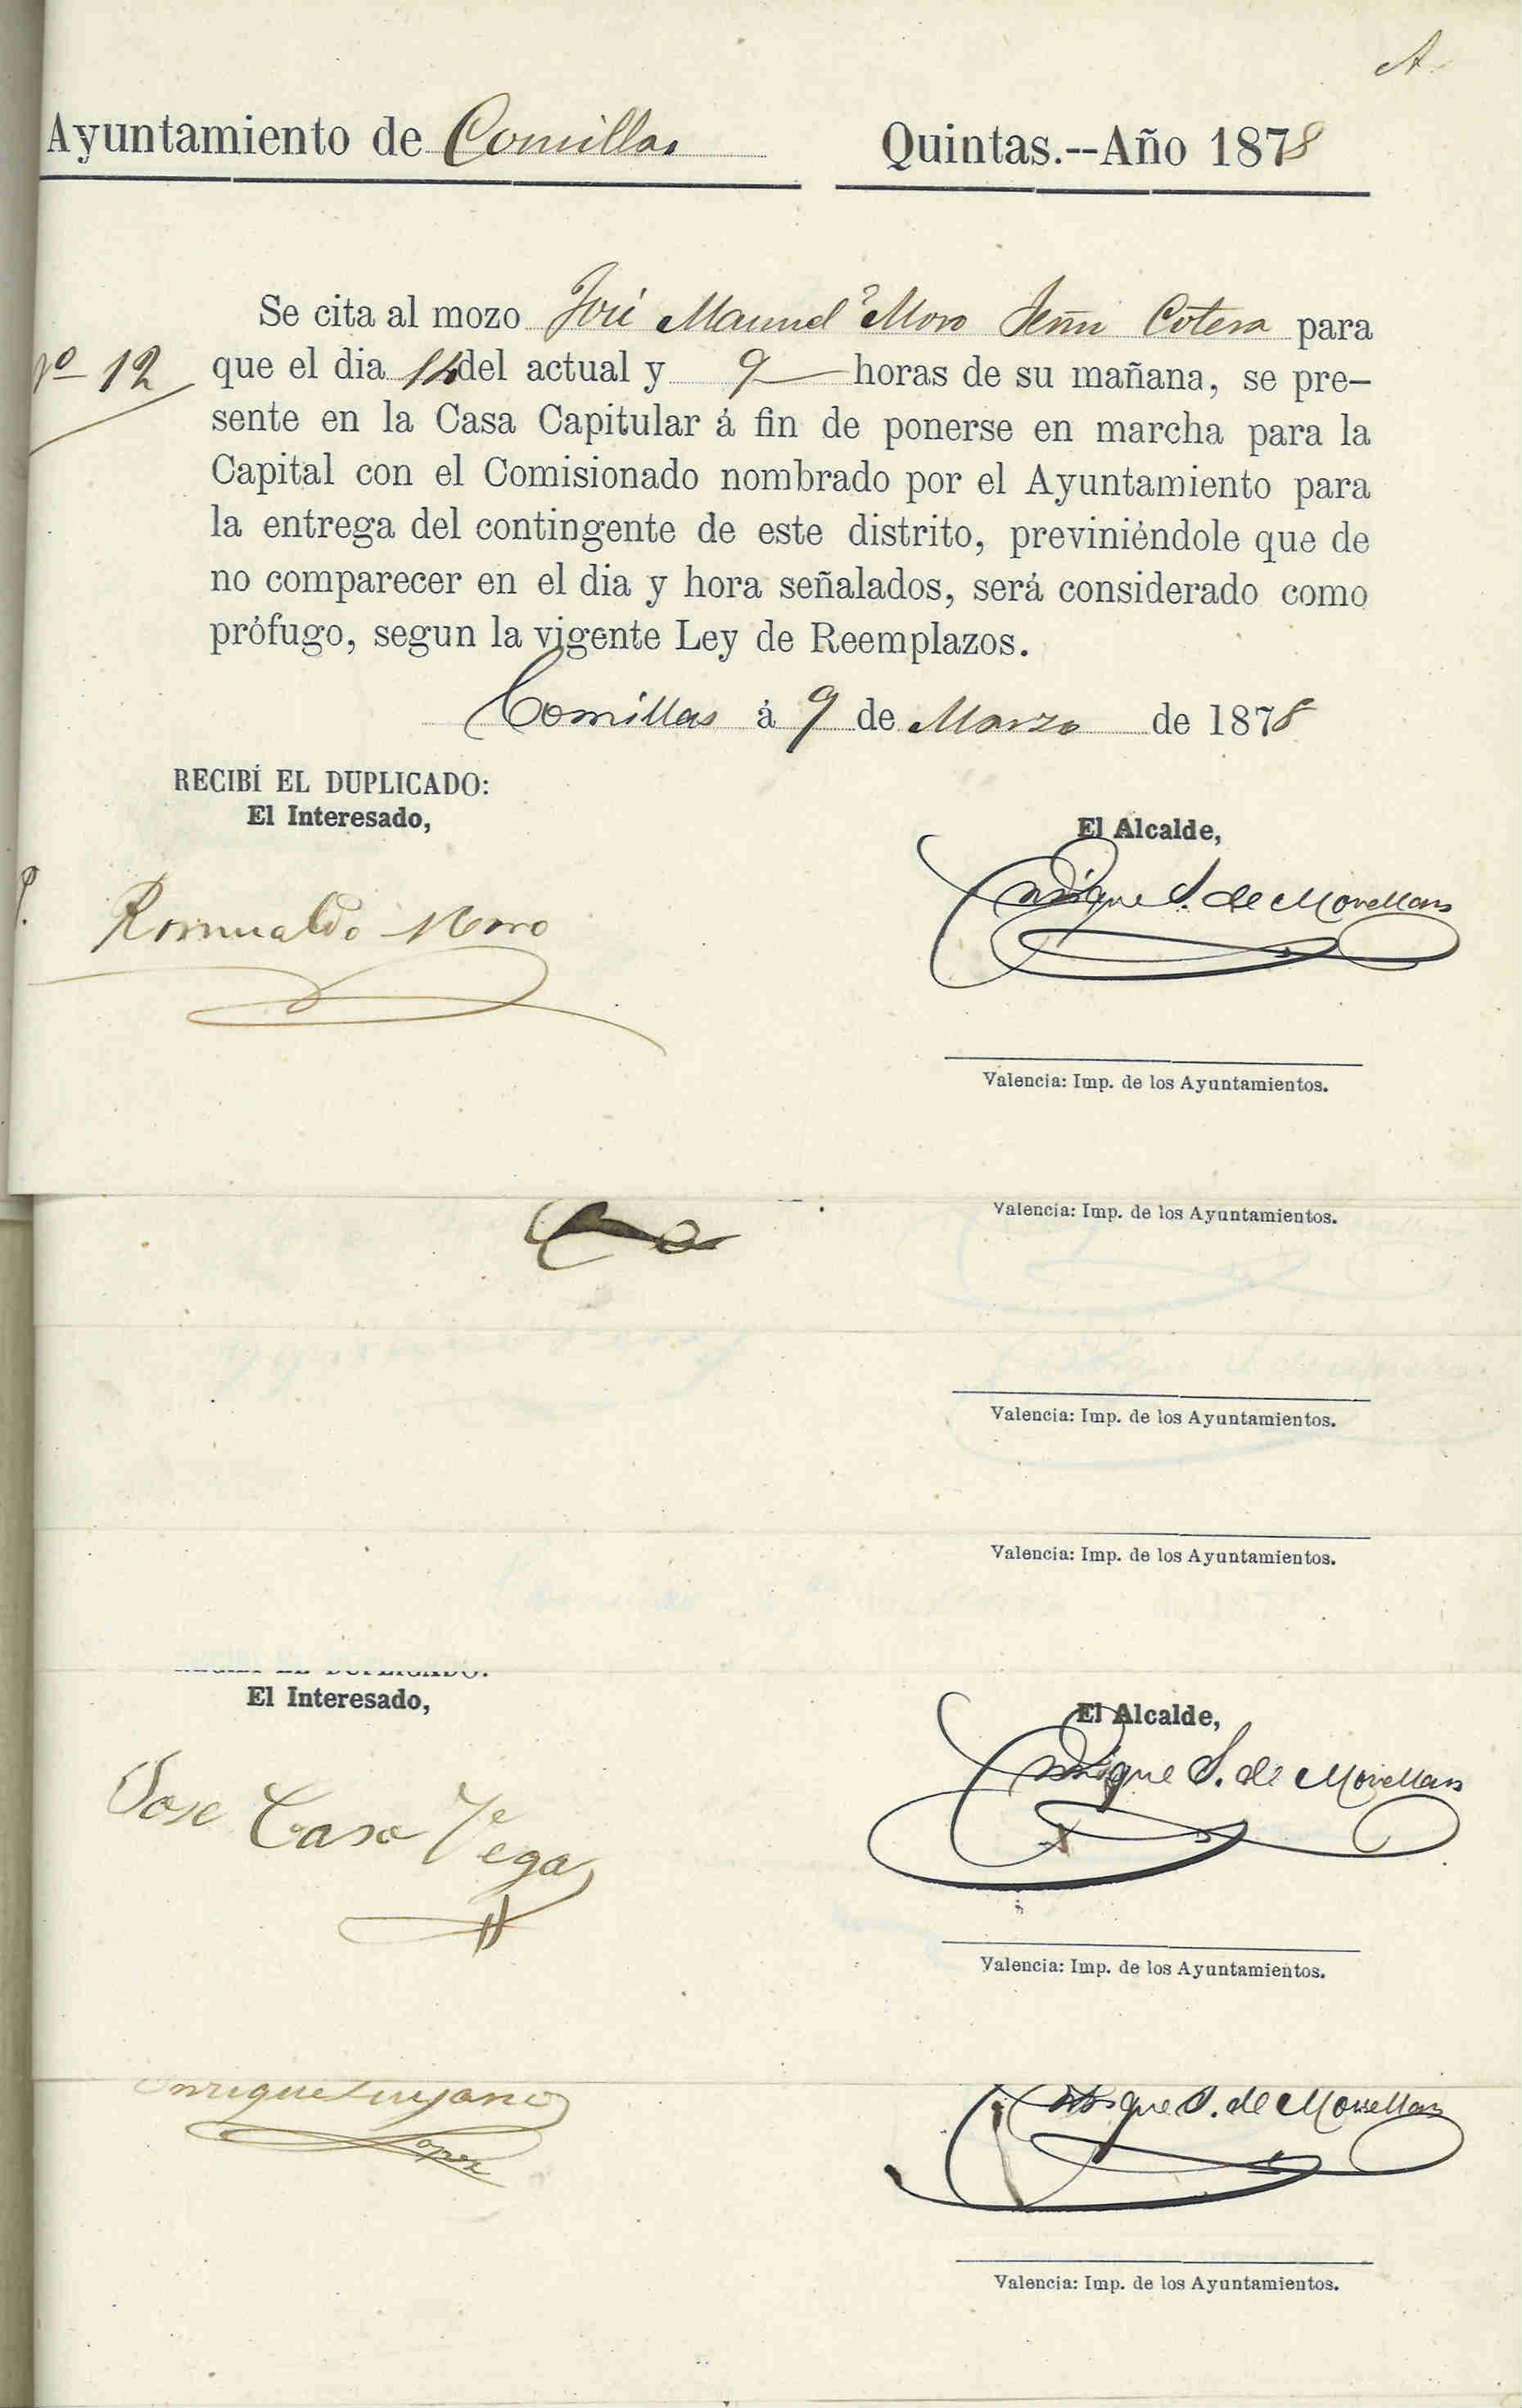 A.
Ayuntamiento de Comillas
Quintas.--Año 1878
Se cita al mozo José Manuel Moro Cotera para
nº 12
que el dia 14 del actual y 9 horas de su mañana, se pre-
sente en la Casa Capitular á fin de ponerse en marcha para la
Capital con el Comisionado nombrado por el Ayuntamiento para
la entrega del contingente de este distrito, previniéndole que de
no comparecer en el dia y hora señalados, será considerado como
prófugo, segun la vigente Ley de Reemplazos.
Comillas á 9 de Marzo de 1878
RECIBÍ EL DUPLICADO:
El Interesado,
El Alcalde,
P.
Romualdo Moro
Enrique S. de Movellan
Valencia: Imp. de los Ayuntamientos.
Valencia: Imp. de los Ayuntamientos.
Valencia: Imp. de los Ayuntamientos.
Valencia: Imp. de los Ayuntamientos.
RECIBÍ EL DUPLICADO:
El Interesado,
El Alcalde,
Jose Caso Vega
Enrique S. de Movellan
Valencia: Imp. de los Ayuntamientos.
Enrique
Lopez
Enrique S. de Movellan
Valencia: Imp. de los Ayuntamientos.